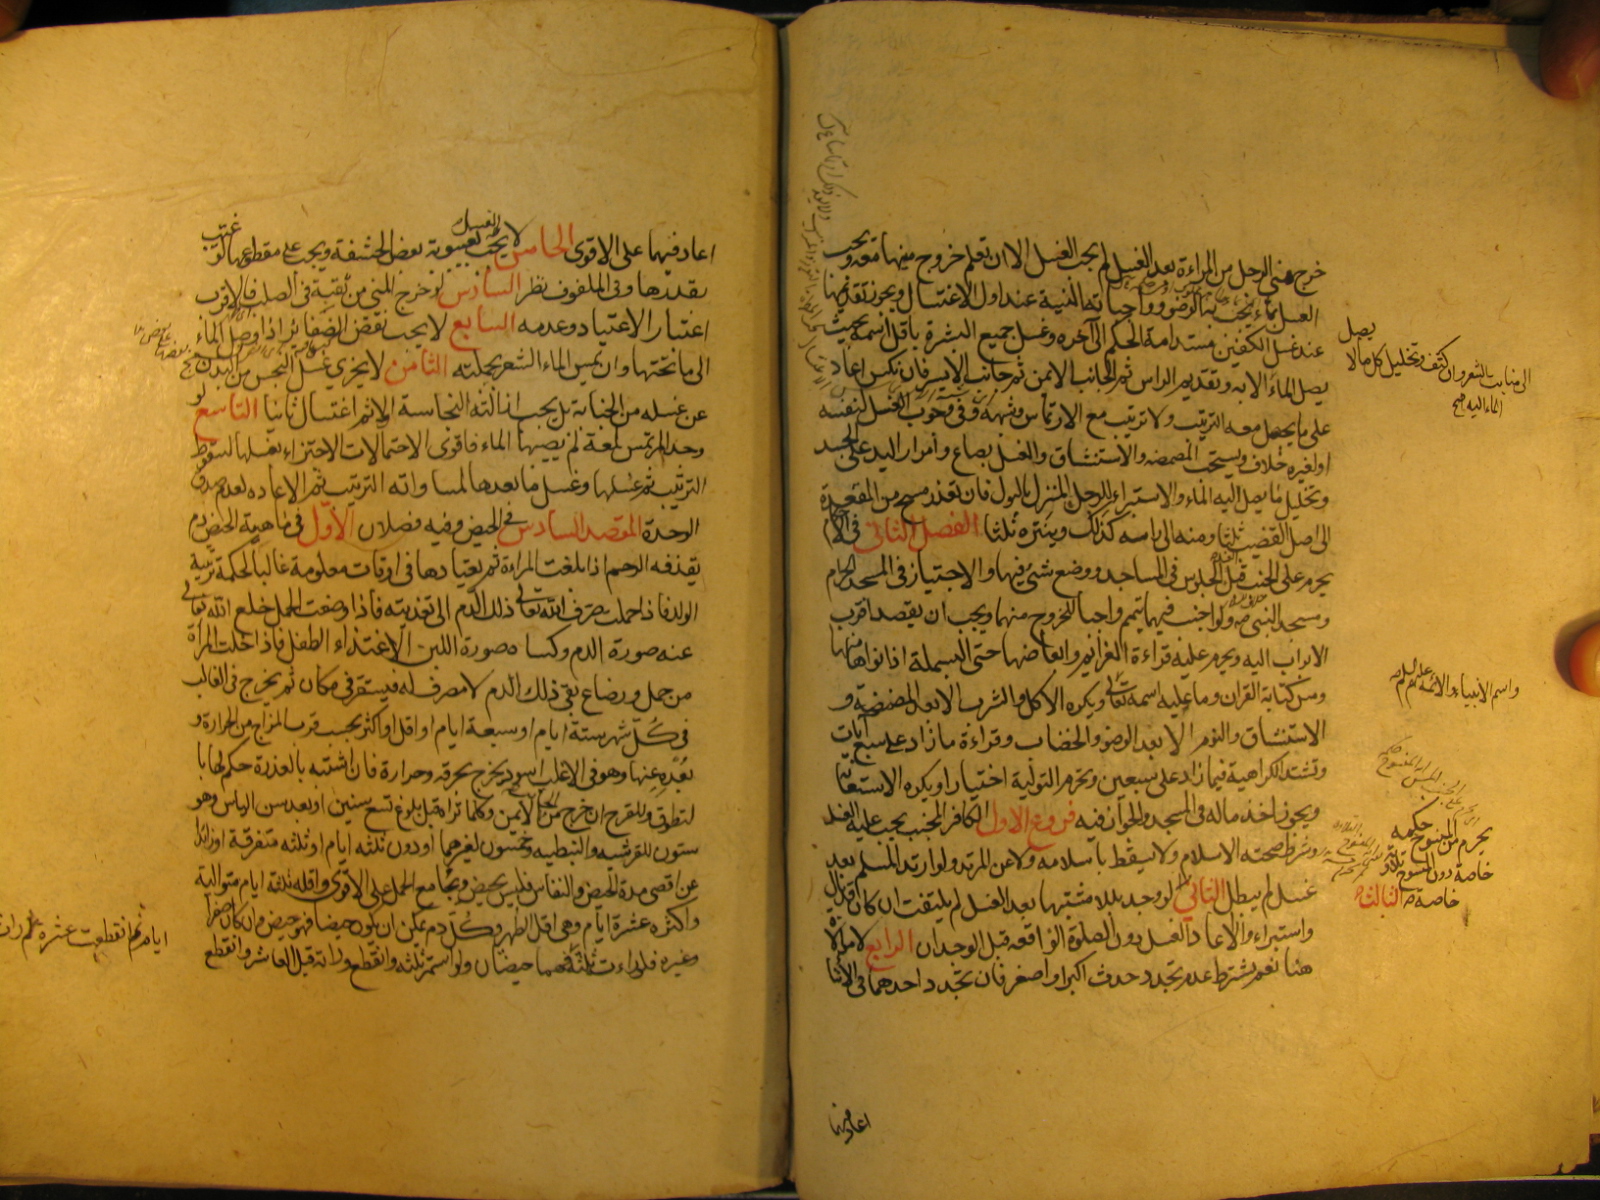 خرج مني الرجل من المراءة بعد الغسل لم يجب الغسل الا ان تعلم خروج منيها معه ويجب
الغسل بماء يجب به الوضوء وواجباته النية عند اول الاغتسال ويجوز تقديمها
عند غسل الكفين مستدامة الحكم الى آخره وغسل جميع البشرة باقل اسمه بحيث
يصل الماء الى منابت الشعر وان كثف وتخليل كل مالا
يصل الماء اليه صح
يصل الماء الا به وتقديم الراس ثم الجانب الايمن ثم جانب الايسر فان نكس اعاد
على ما يحصل معه الترتيب ولا ترتيب مع الارتماس وشبهه وفي وجوب الغسل لنفسه
او لغيره خلاف ويستحب المضمضه والاستنشاق والغسل بصاع وأمرار اليد على الجسد
وتخليل ما يصل اليه الماء والاستبراء للرجل المنزل بالبول فان تعذر مسح من المقعدة
الى اصل القضيب ثلثا ومنه الى راسه كذلك وينتره ثلثا الفصل الثاني في الاحكام
يحرم على الجنب قبل الغسل الجلوس في المساجد ووضع شئ فيها والاجتياز في المسجد الحرام
ومسجد النبي ص ولو اجنب فيهما تيمم واجبا للخروج منهما ويجب ان يقصد اقرب
الابواب اليه ويحرم عليه قراءة العزائم وابعاضها حتى البسملة اذا نواها منها
ومس كتابة القران وما عليه اسمه تعالى ويكره الاكل والشرب الا بعد المضمضة و
واسم الأنبياء والأئمه عليهم السلم
الاستنشاق والنوم الا بعد الوضوء والخضاب وقراءة ما زاد على سبع آيات
وتشتد الكراهية فيما زاد على سبعين وتحرم التولية اختيارا ويكره الاستعانة
ويجوز اخذ ماله في المسجد والجواز فيه فروع الاول الكافر المجنب يجب عليه الغسل
وشرط صحته الاسلام ولا يسقط بأسلامه ولا عن المرتد ولو ارتد المسلم بعد
يحرم من المنسوخ حكمه
خاصة دون المنسوخ تلاوته
خاصة صح الثالث
غسله لم يبطل الثاني لو وجد بللا مشتبها بعد الغسل لم يلتفت ان كان قد بال
واستبراء والا عاد الغسل دون الصلوة الواقعه قبل الوجدان الرابع لا موالاة
هنا نعم يشترط عدم تجدد حدث اكبر او اصغر فان تجدد احدهما في الاثناء
اعاد فيهما
اعاد فيهما على الاقوى الخامس لا يجب الغسل بغيبوبة بعض الحشفة ويجب على مقطوعها لو غيب
بقدرها وفي الملفوف نظر السادس لو خرج المني من ثقبة في الصلب فالاقرب
اعتبار الاعتياد وعدمه السابع لا يجب نقض الضفائر اذا وصل الماء
الى ما تحتها وان لم يمس الماء الشعر بجملته الثامن لا يجزي غسل النجس من البدن
عن غسله من الجنابة بل يجب ازالته النجاسة اولا ثم اغتسال ثانيا التاسع لو
وجد المرتمس لمعة لم يصبها الماء فاقوى الاحتمالات الاجتزاء بغسلها لسقوط
الترتيب ثم غسلها وغسل ما بعدها لمساواته الترتيب ثم الاعاده لعدم صدق
الوحدة المقصد السادس في الحيض وفيه فصلان الأول في ماهيته الحيض دم
يقذفه الرحم اذا بلغت المراءة ثم يعتادها في اوقات معلومة غالبا لحكمة تربية
الولد فاذا حملت صرف الله تعالى ذلك الدم الى تغذيته فاذا وضعت الحمل خلع الله تعالى
عنه صورة الدم وكساه صورة اللبن لاغتذاء الطفل فاذا خلت المرأة
من حمل ورضاع بقي ذلك الدم لا مصرف له فيستقر في مكان ثم يخرج في الغالب
في كل شهر ستة ايام او سبعة ايام او اقل او اكثر بحسب قرب المزاج من الحرارة و
بعده عنها وهو في الاغلب اسود يخرج بحرقة وحرارة فان اشتبه بالعذرة حكم لها با
لتطوق وللقرح ان خرج من الجانب الأيمن وكلما تراه قبل بلوغ تسع سنين او بعد سن الياس وهو
ستون للقرشيه والنبطيه وخمسون لغيرهما او دون ثلثه ايام او ثلثه متفرقة او زائدا
عن اقصى مدة الحيض والنفاس فليس بحيض ويجامع الحمل على الاقوى واقله ثلثة ايام متوالية
واكثره عشرة ايام وهي اقل الطهر وكل دم يمكن ان يكون حيضا فهو حيض وان كان اصفر
وغيره فلو رات ثلثة
ايام ثم انقطعت عشرة ثم رات
فهما حيضان ولو استمر ثلثه وانقطع وراته قبل العاشر وانقطع